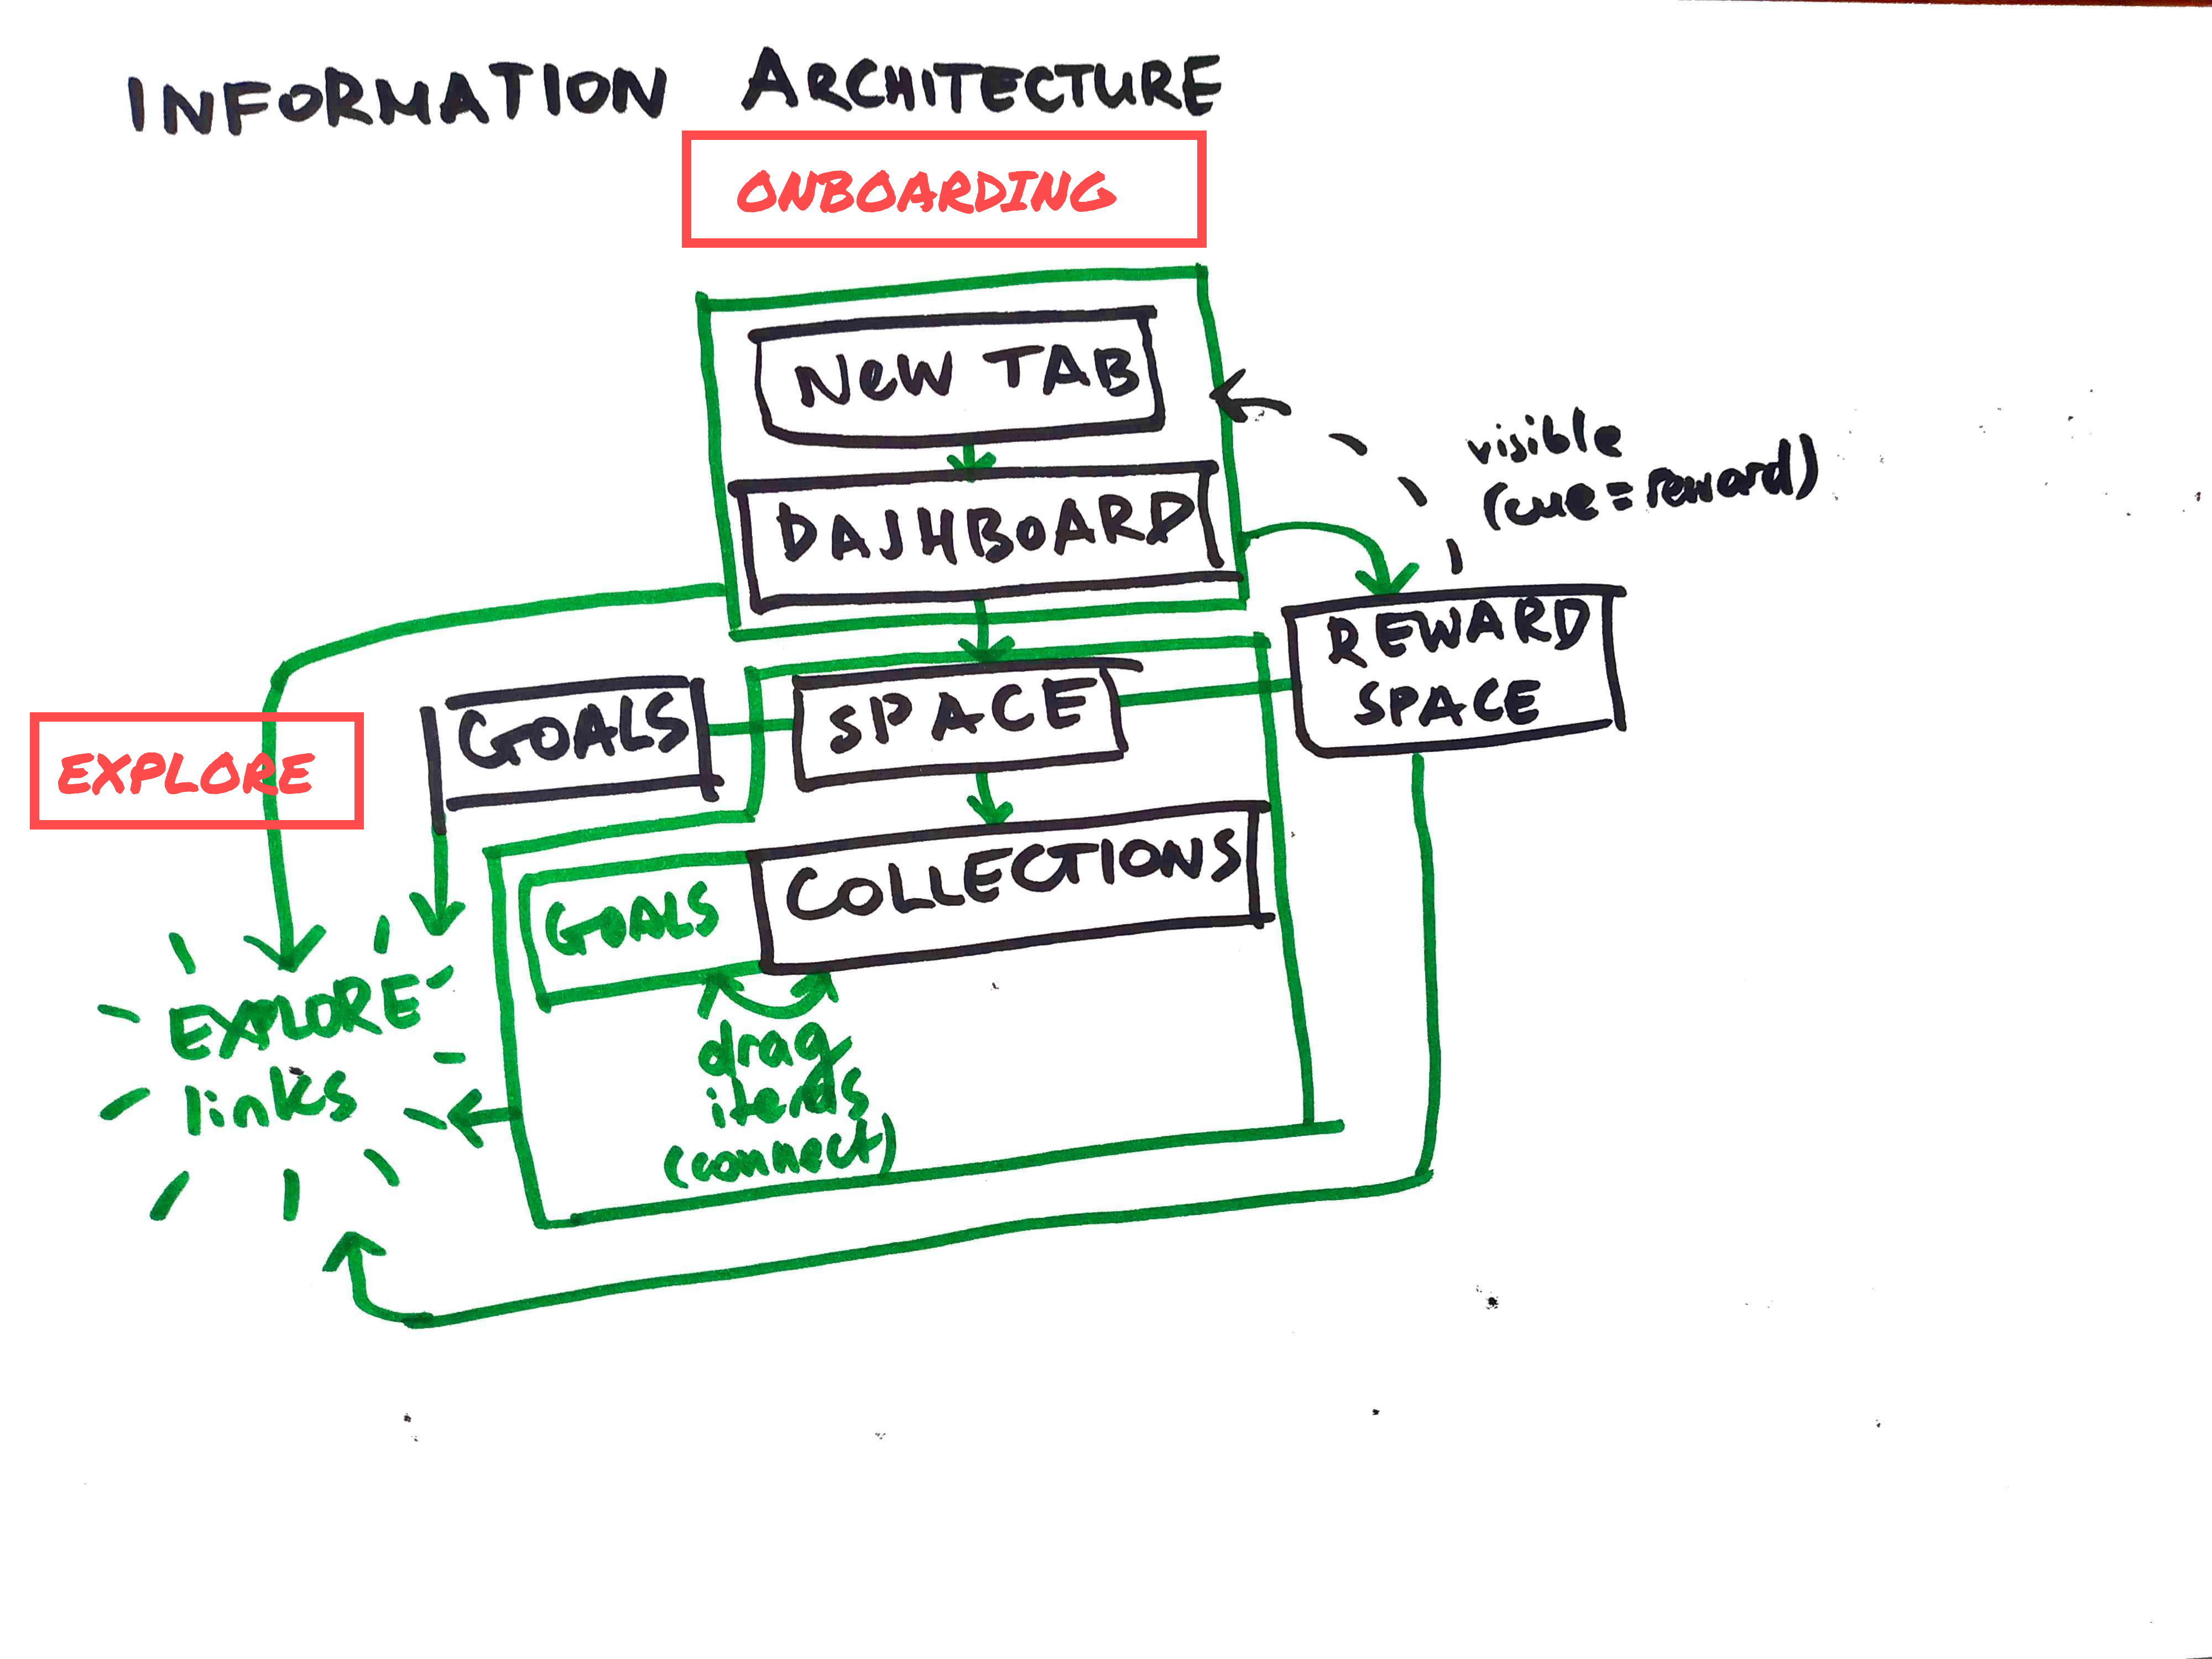 INFORMATION ARCHITECTURE
ONBOARDING
NEW TAB
visible
(cue = reward)
DASHBOARD
REWARD
SPACE
GOALS
SPACE
EXPLORE
COLLECTIONS
GOALS
EXPLORE
links
drag
items
(connect)